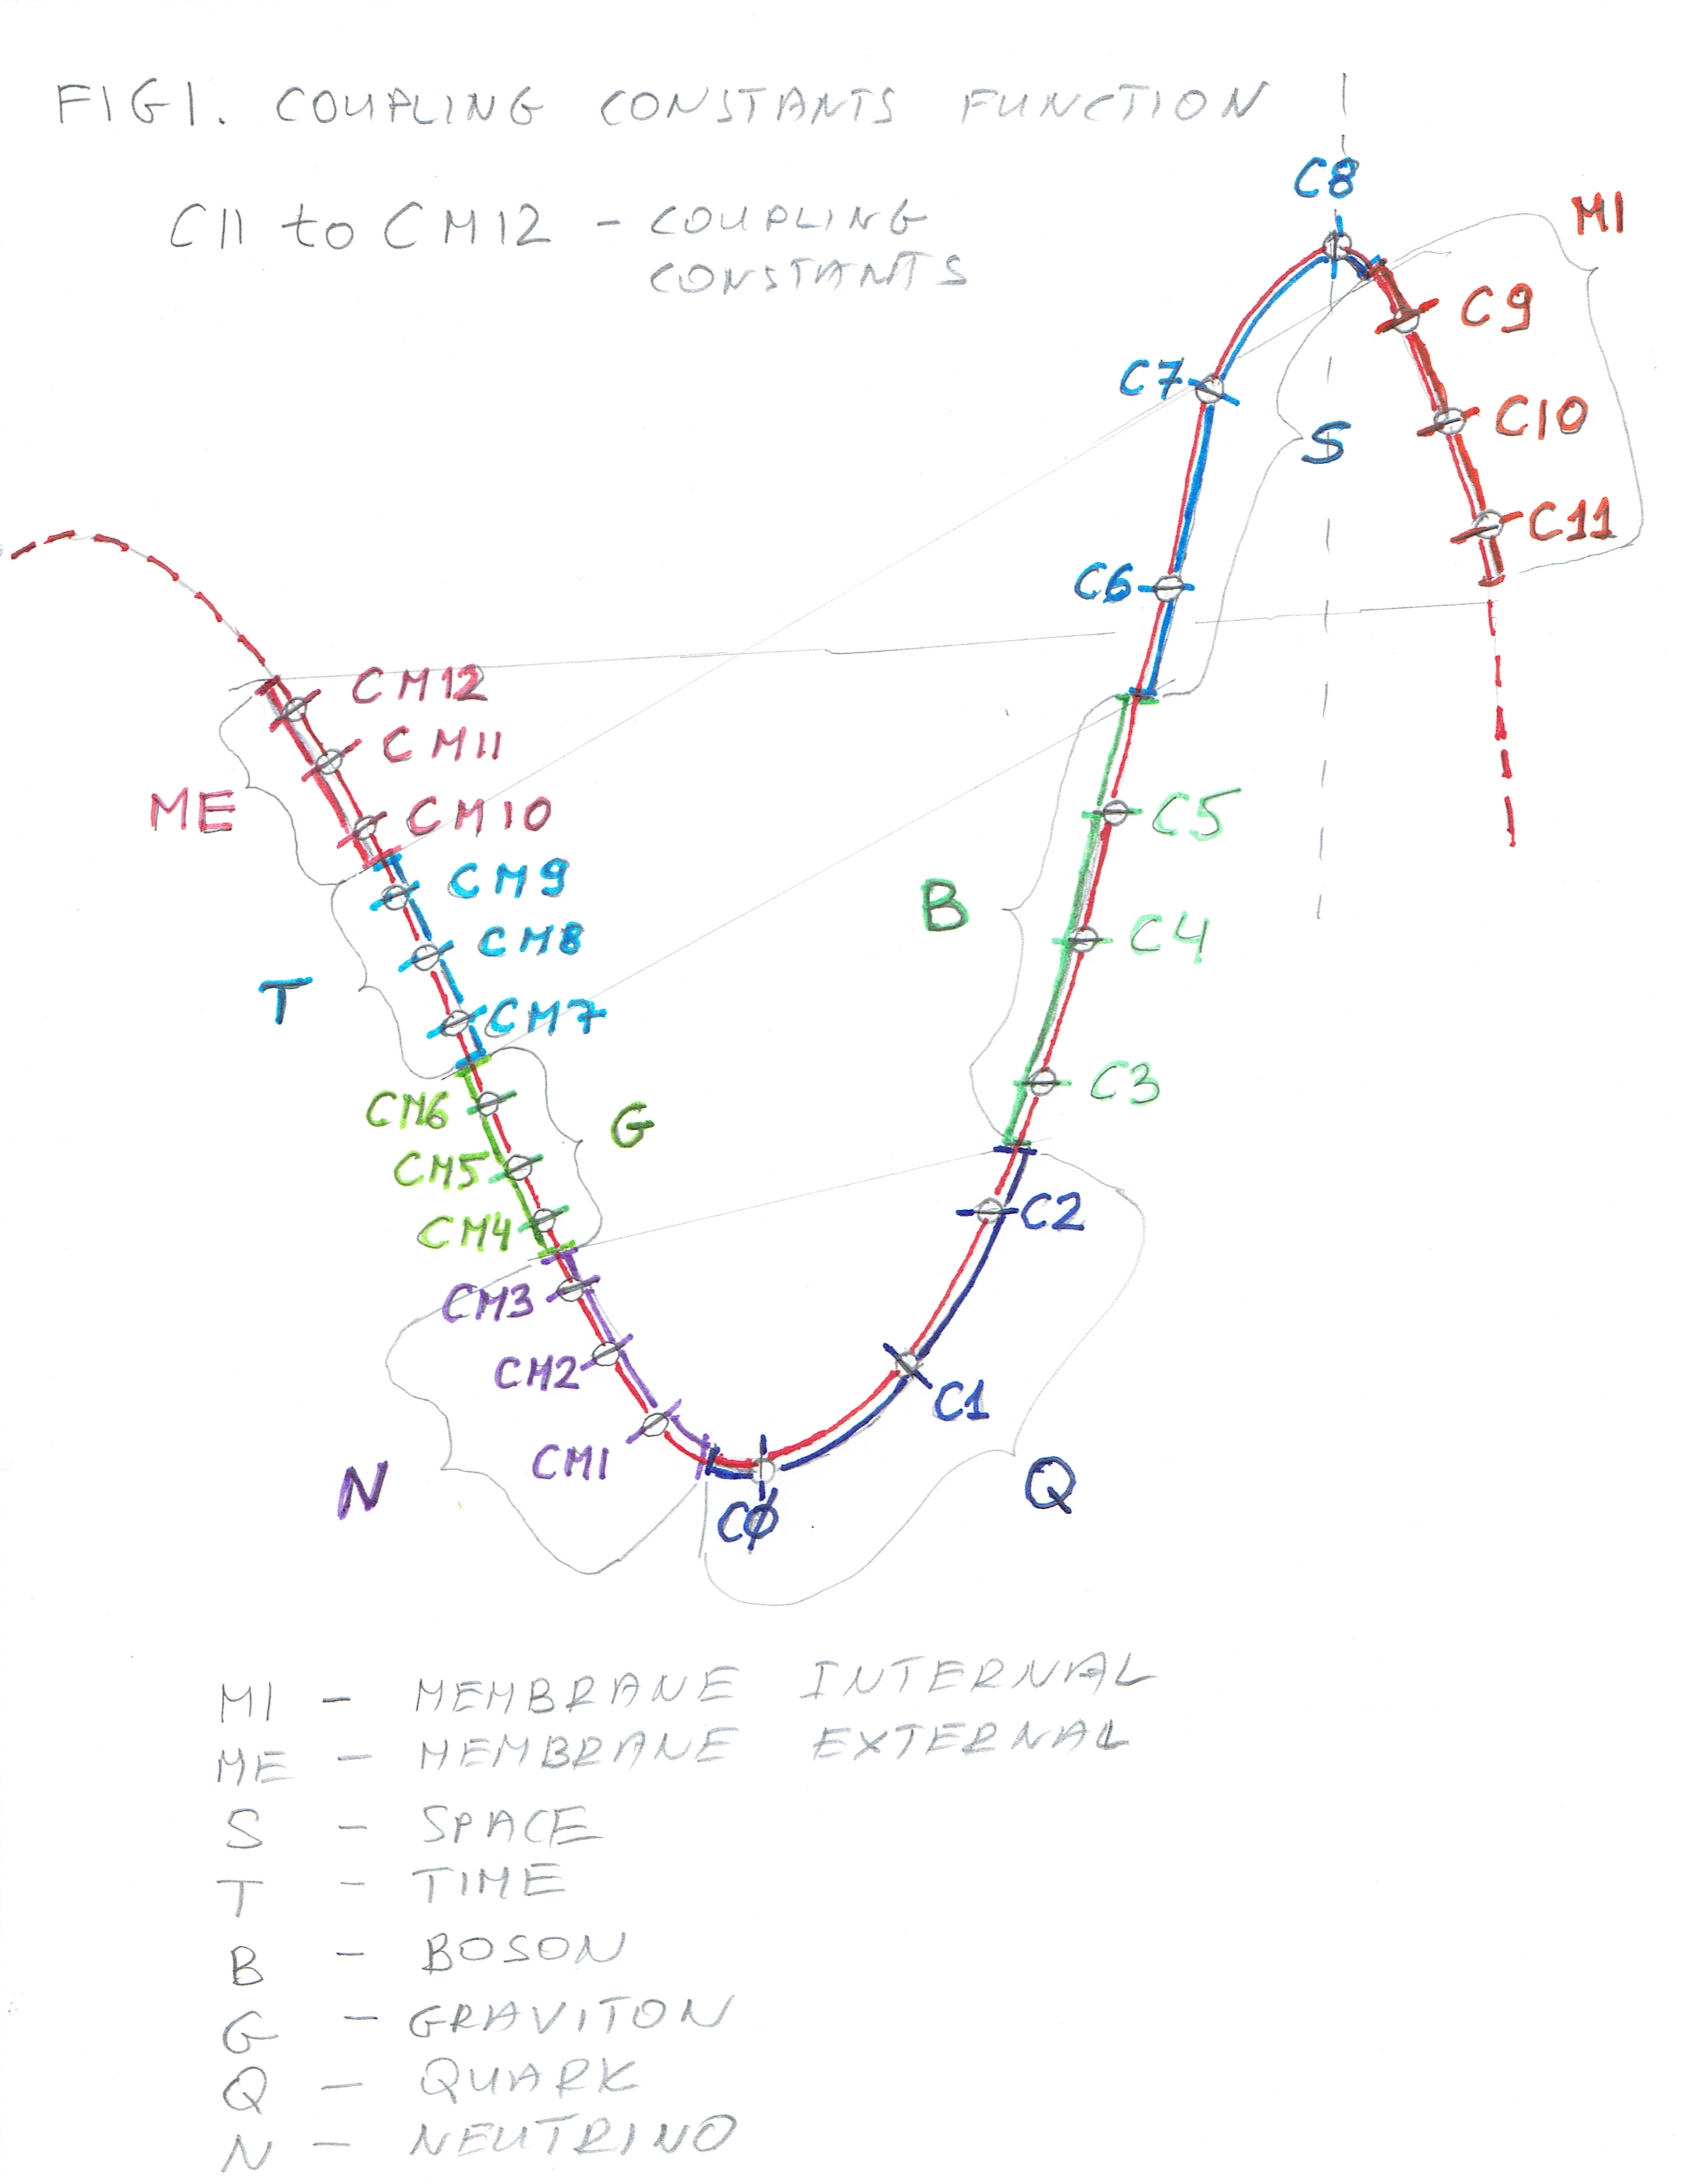 FIG1. COUPLING CONSTANTS FUNCTION
C11 to CM12 - COUPLING
CONSTANTS
C8
MI
C9
C7
C10
S
C11
C6
CM12
CM11
ME
CM10
C5
CM9
B
C4
CM8
T
CM7
C3
CM6
G
CM5
C2
CM4
CM3
CM2
C1
CM1
N
Q
CØ
MI - MEMBRANE INTERNAL
ME - MEMBRANE EXTERNAL
S - SPACE
T - TIME
B - BOSON
G - GRAVITON
Q - QUARK
N - NEUTRINO